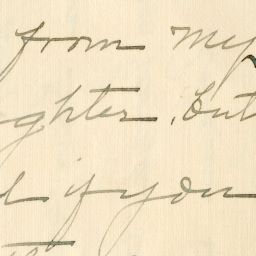 from my
ghter, but
if you